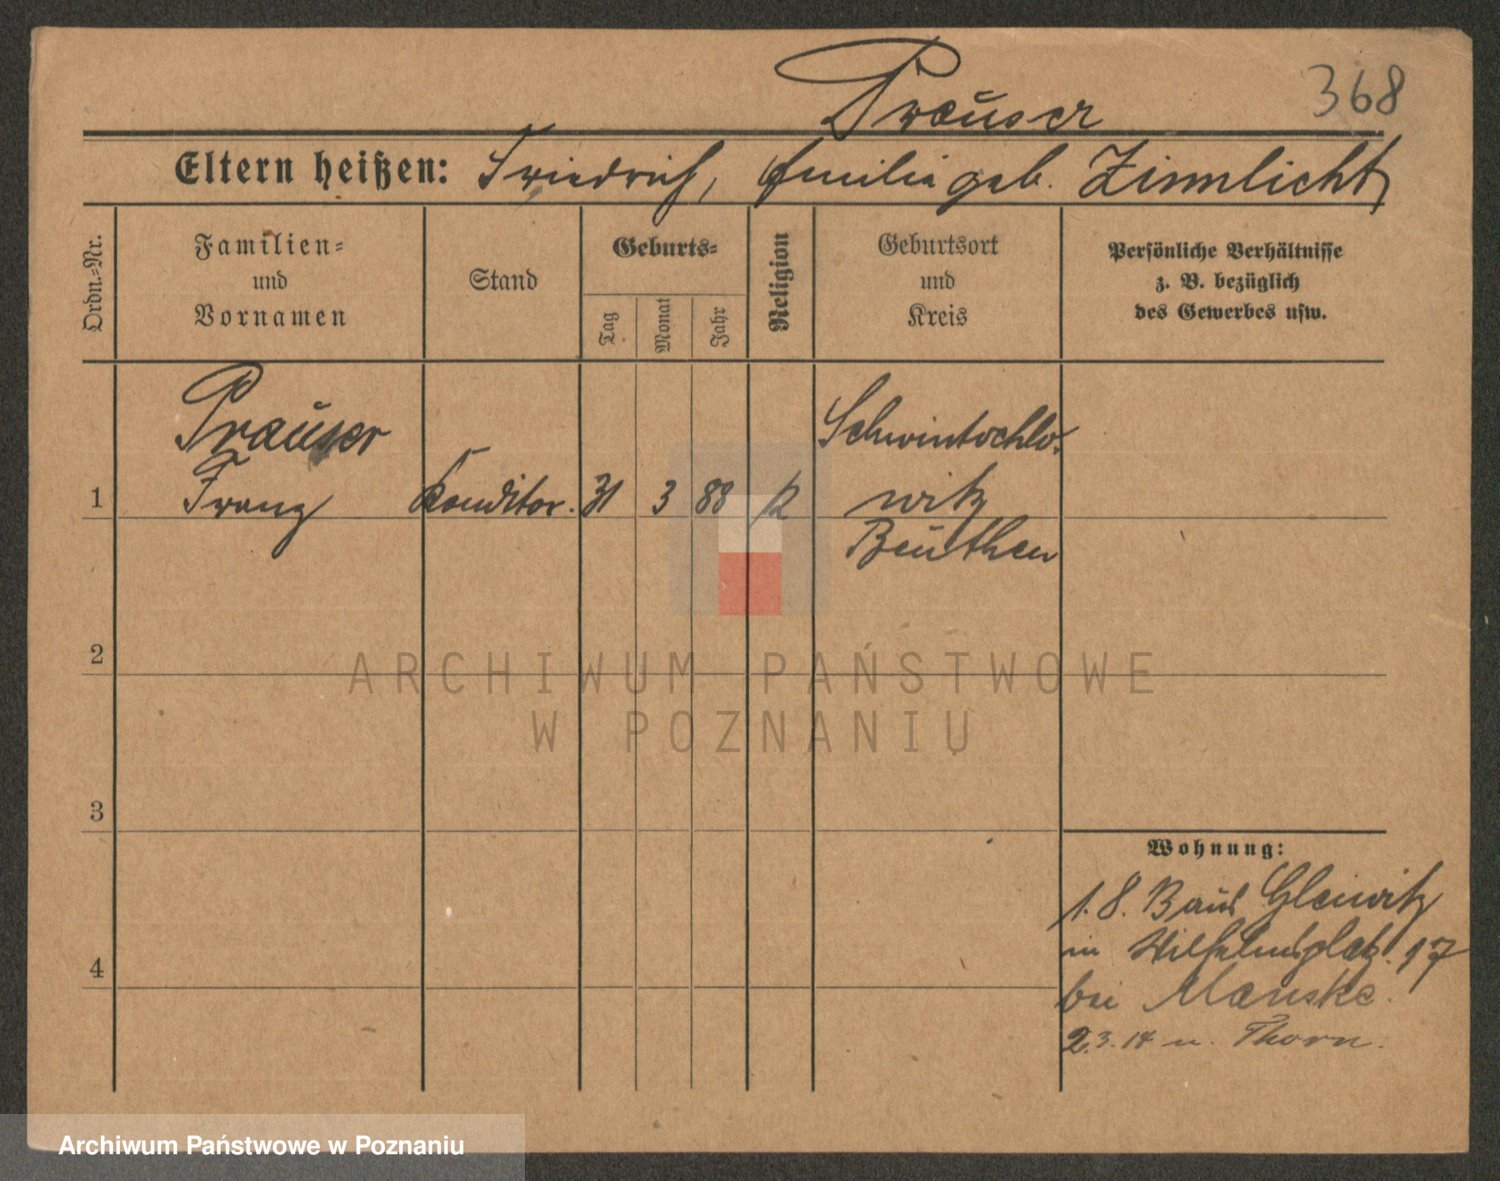 Prauser
368
Eltern heißen: Friedrich, Emilie geb. Zinnlicht
Ordn.-Nr.
Familien-
und
Vornamen
Stand
Geburts-
Tag
Monat
Jahr
Religion
Geburtsort
und
Kreis
Persönliche Verhältnisse
z. B. bezüglich
des Gewerbes usw.
Prauser
1 Franz Konditor. 31 3 88 K
Schwintochlo-
witz
Beuthen
2
3
4
Wohnung:
1.8. Gleiwitz
in Wilhelmsplatz. 17
bei Manske.
2.3.14 n. Thorn.
ARCHIWUM PAŃSTWOWE
W POZNANIU
Archiwum Państwowe w Poznaniu